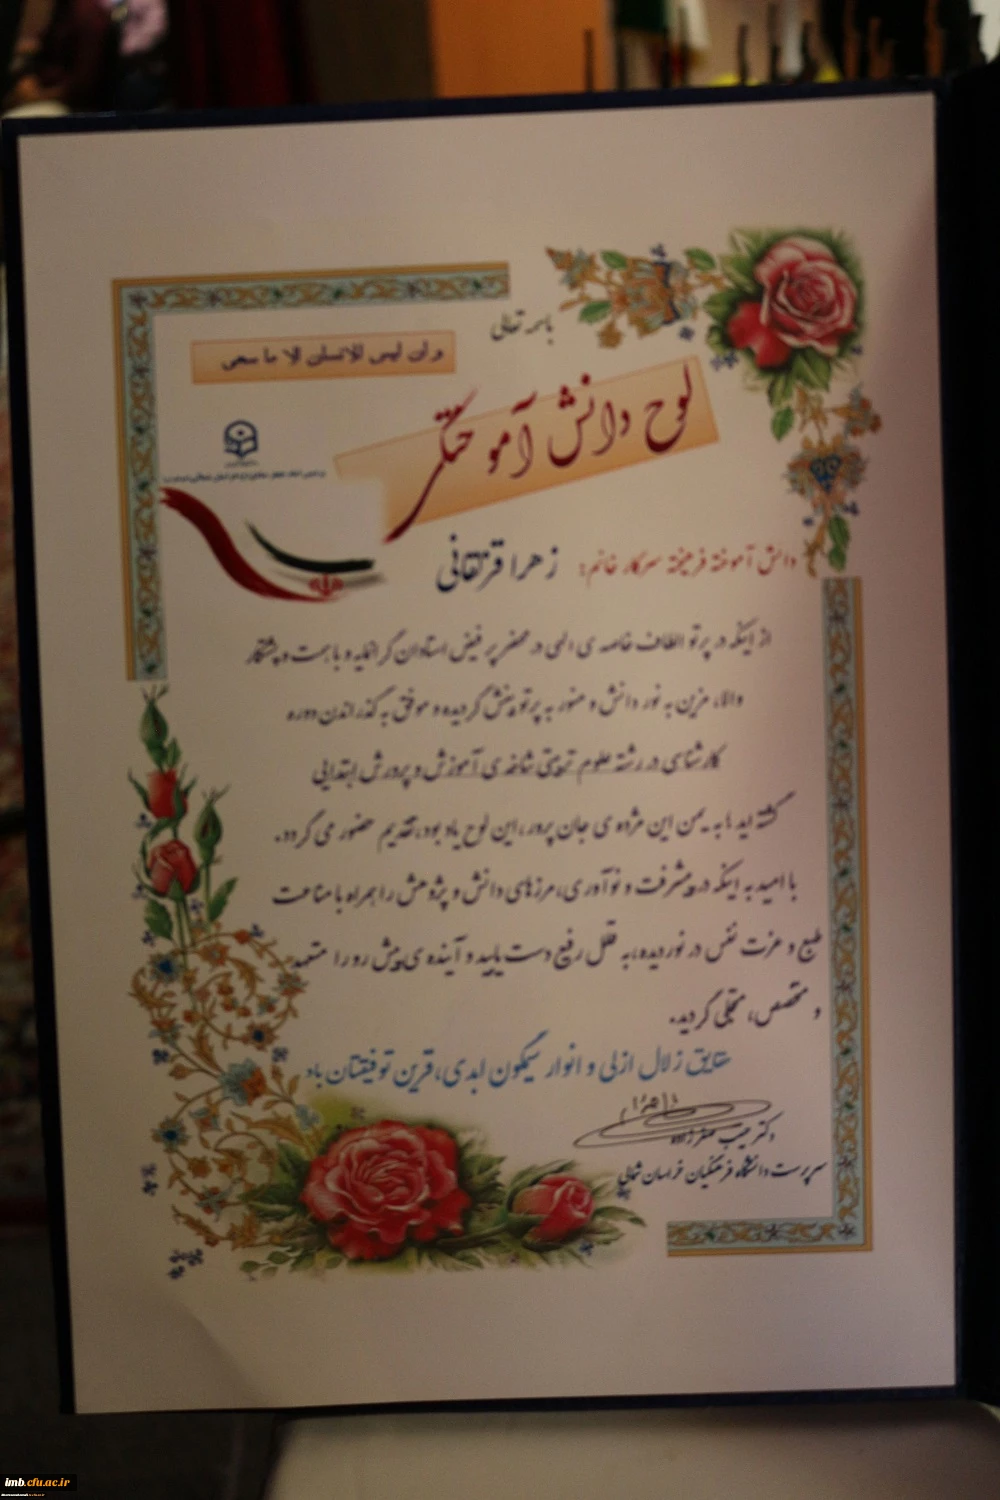 باسمه تعالی
و ان لیس للانسان الا ما سعی
لوح دانش آموختگی
دانش آموخته فرهیخته سرکار خانم: زهرا قزلقانی
از اینکه در پرتو الطاف خاصه ی الهی در محضر پر فیض استادان گرانمایه و با همت و پشتکار
والا، مزین به نور دانش و منور به پرتو بینش گردیده و موفق به گذراندن دوره
کارشناسی در رشته علوم تربیتی شاخه ی آموزش و پرورش ابتدایی
گشته اید ما به یمن این مژده ی جان پرور، این لوح یاد بود، تقدیم حضور می گردد.
با امید به اینکه در پیشرفت و نوآوری، مرزهای دانش و پژوهش را همراه با مناعت
طبع و عزت نفس در نوردیده، به قلل رفیع دست یابید و آینده ی پیش رو را متعهد
و متخصص، متجلی گردید.
حقایق زلال ازلی و انوار سیمگون ابدی، قرین توفیقتان باد
دکتر حبیب صفرزاده
سرپرست دانشگاه فرهنگیان خراسان شمالی
imb.cfu.ac.ir